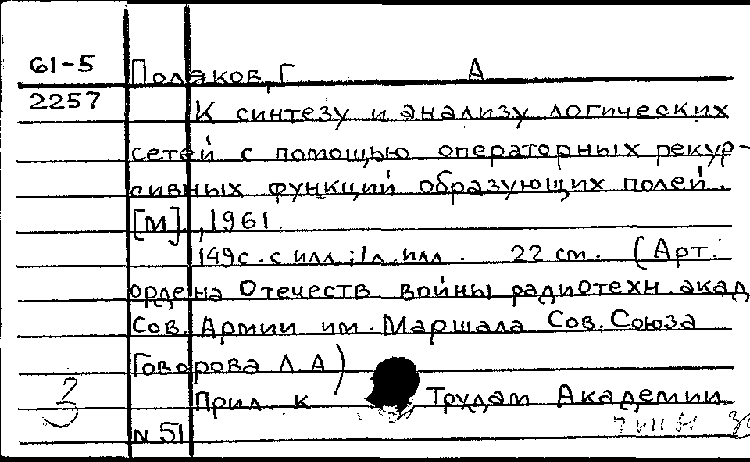 61-5 Поляков, Г А
2257 К синтезу и анализу логических
сетей с помощью операторных рекур-
сивных функций образующих полей.
[М]., 1961.
149с. с илл; 1л. илл. 22 см. (Арт.
ордена Отечеств войны радиотехн. акад
Сов. Армии им. Маршала Сов. Союза
Говорова Л.А)
3 Прил к Трудам Академии
N 51